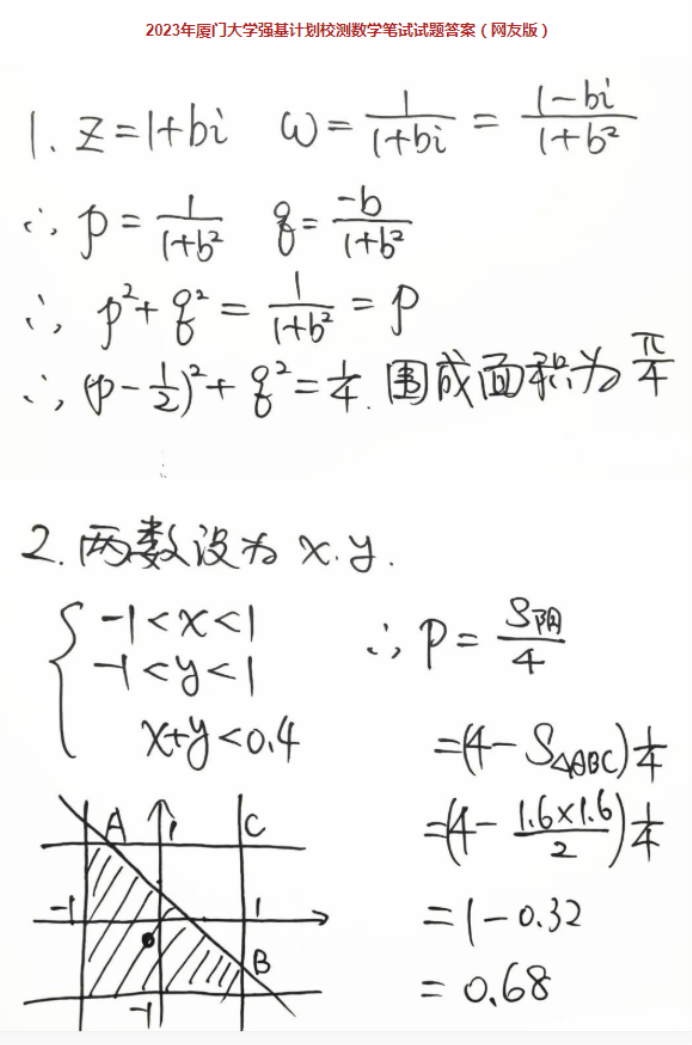 2023年厦门大学强基计划校测数学笔试试题答案（网友版）
1. z=1+bi ω=1/(1+bi)=(1-bi)/(1+b²)
∴ p=1/(1+b²) q=-b/(1+b²)
∴ p²+q²=1/(1+b²)=p
∴ (p-1/2)²+q²=1/4. 围成面积为π/4
2. 两数设为x.y.
{-1<x<1
-1<y<1
x+y<0.4
∴ P=S阴/4
=(4-S△ABC)1/4
=(4-(1.6×1.6)/2)1/4
=1-0.32
=0.68
A 1 C
-1 1
B
-1